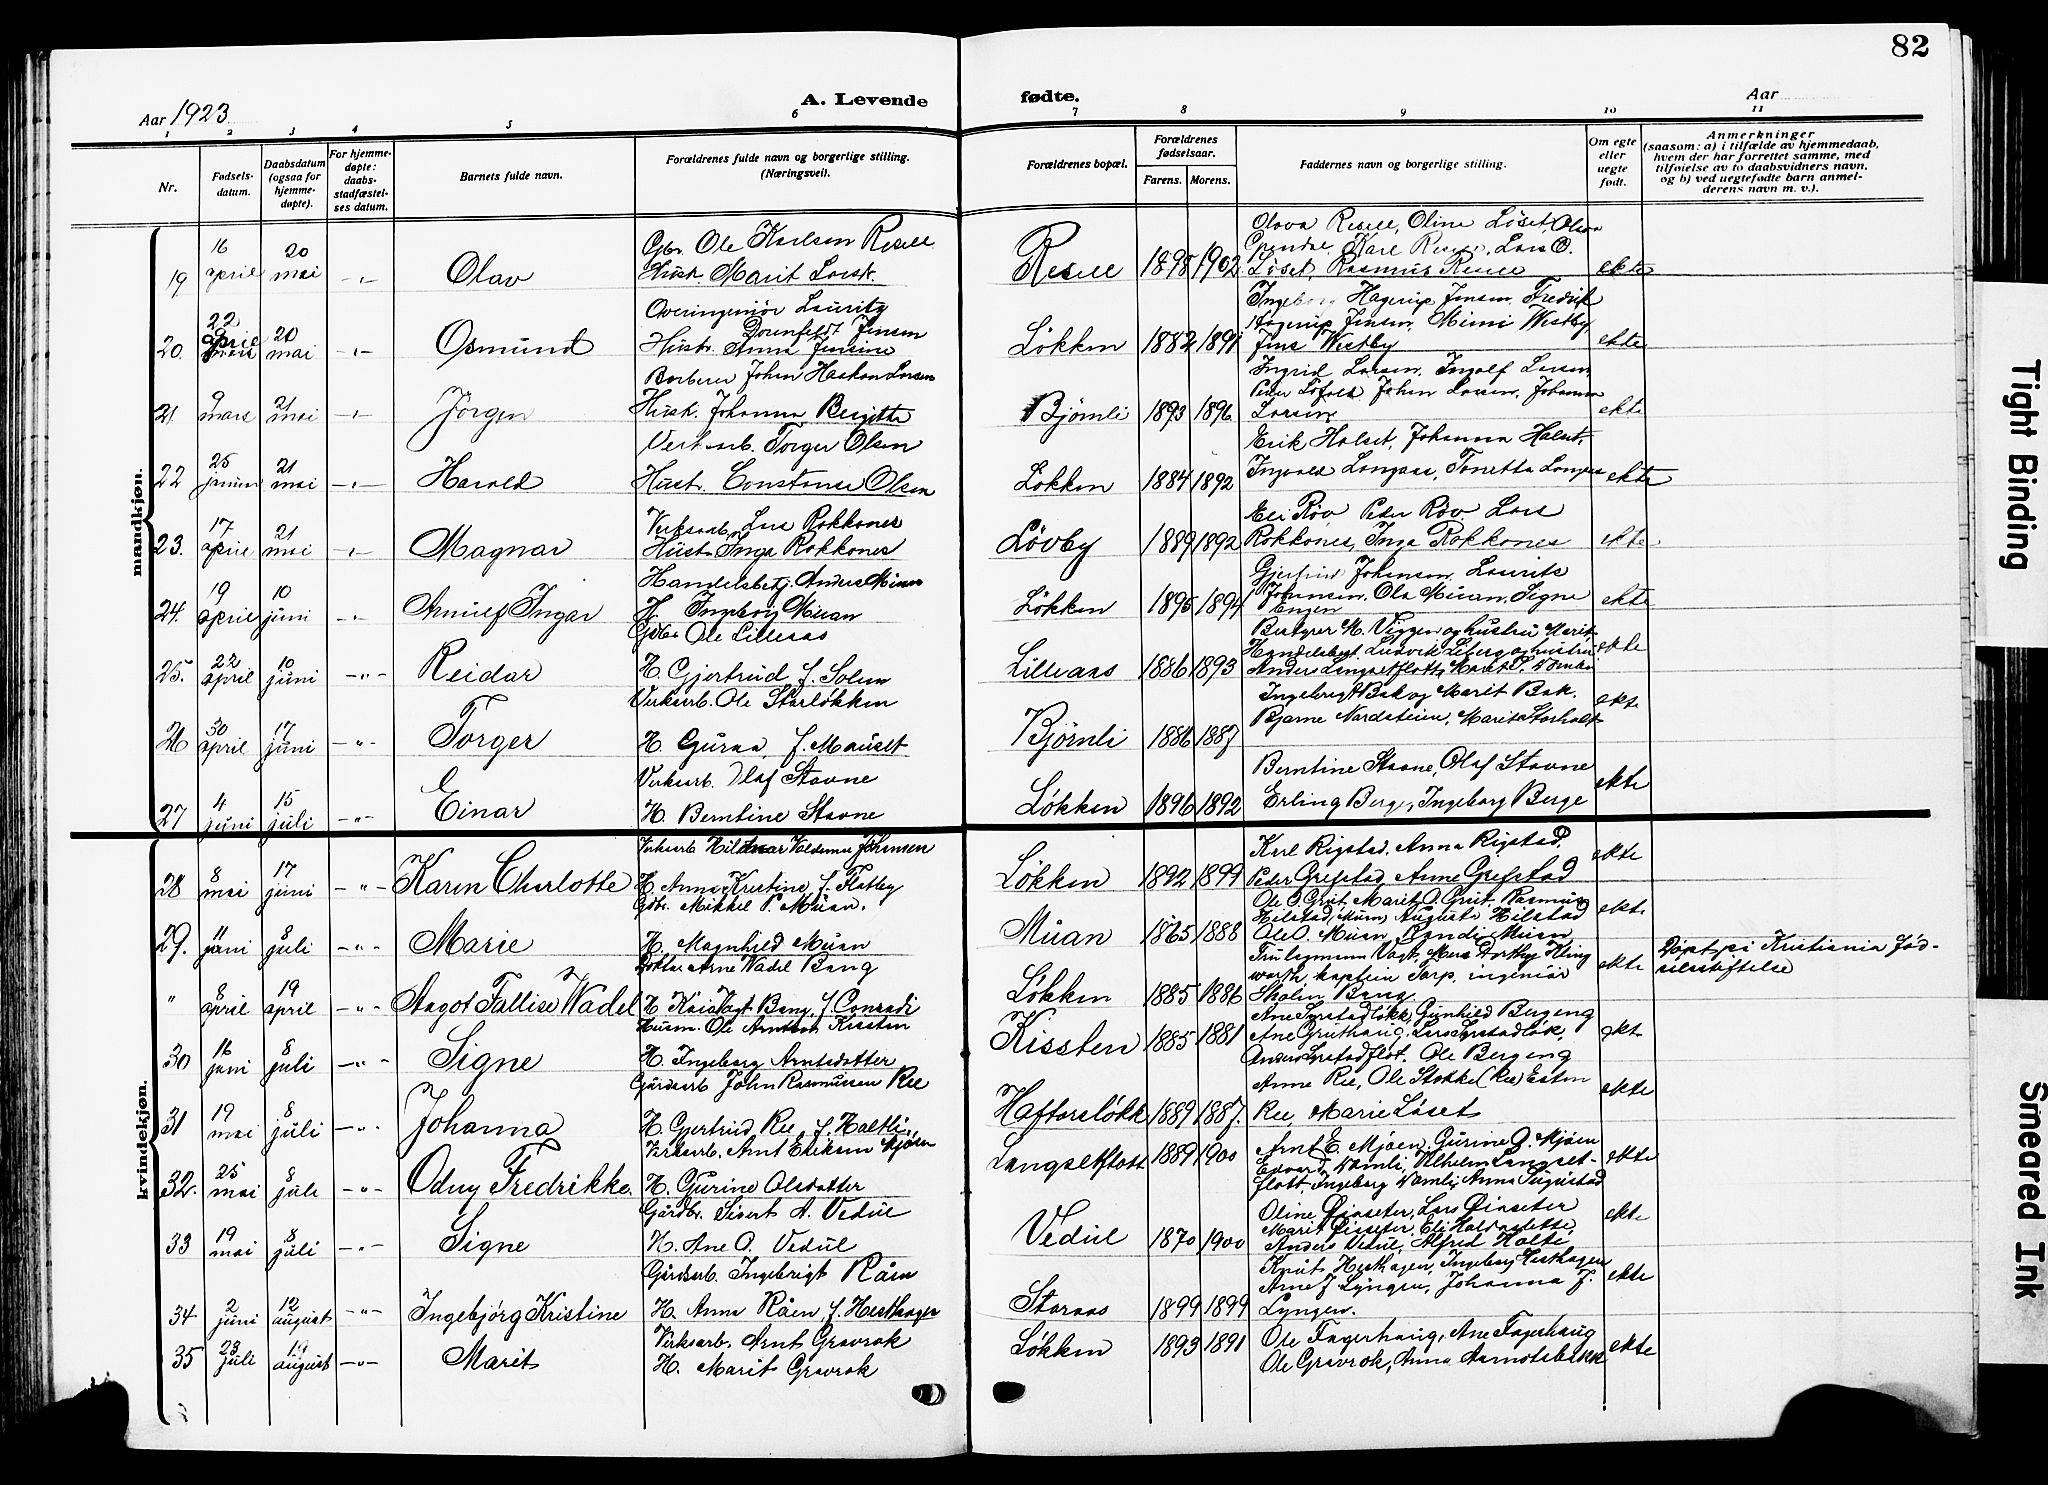 82
Aar 1923
A. Levende
fødte.
Aar
1 2 3 4 5 6 7 8 9 10 11
Nr.
Fødsels-
datum.
Daabsdatum
(ogsaa for
hjemme-
døpte).
For hjemme-
døpte:
daabs-
stadfæstel-
ses datum.
Barnets fulde navn.
Forældrenes fulde navn og borgerlige stilling.
(Næringsvei).
Forældrenes bopæl.
Forældrenes
fødselsaar.
Farens. Morens.
Faddernes navn og borgerlige stilling.
Om egte
eller
uegte
født.
Anmerkninger
(saasom: a) i tilfælde av hjemmedaab,
hvem der har forrettet samme, med
tilføielse av to daabsvidners navn,
og b) ved uegtefødte barn anmel-
derens navn m. v.).
mandkjøn.
19 16 april 20 mai -"- Olav
Gbr. Ole Karlsen Resell
Hust. Marit Larsk.
Resell 1898 1902
Olava Resell, Oline Löset, Olava
Karl Resell, Lars O.
Löset, Rasmus Resell
ekte
20. 22 april 20 mai -"- Osmund
Overingeniør Lauritz
Dorenfeldt Jenssen
Hustr. Anna Jensine
Løkken 1882 1891
Ingeborg Hagerup Jenssen, Fredrik
Hagerup Jenssen, Mimi Westby,
Jens Westby
ekte
21. 9 mars 21 mai -"- Jörgen
Barberer Johan Haakon Larsen
Hust. Johanna Bergitte
Bjömli 1893 1896
Ingrid Larsen, Ingolf Larsen,
Peder Löfald, Johan Larsen, Johanna
Larsen
ekte
22 25 januar 21 mai -"- Harald
Verksarb. Torger Olsen
Hustr. Constanse Olsen
Løkken 1884 1892
Erik Halset, Johanna Halset,
Ingvald Langaas, Tonetta Langaas
ekte
23. 17 april 21 mai -"- Magnar
Verksarb. Lars Rokkones
Hustr. Inga Rokkones
Lövby 1889 1892
Eli Röv, Peder Röv, Lars
Rokkones, Inga Rokkones
ekte
24. 19 april 10 juni -"- Arnulf Ingar
Handelsbetj. Anders Muan
H. Ingeborg Muan
Løkken 1895 1894
Gjertrud Johansen, Laurits
Johansen, Ola Muan, Signe
Engen
ekte
25. 22 april 10 juni -"- Reidar
Gdbr Ole Lilleaas
H. Gjertrud f. Solem
Lilleaas 1886 1893
Bestyrer M. Viggen og hustru Marit,
Handelsbest. Ludvik Liberg og hustru
Ander Langsetflotts, Marit
ekte
26 30 april 17 juni -"- Torger
Verksarb. Ole Storløkken
H. Guraa, f. Mauset
Bjørnli 1886 1887
Ingebrigt Bak og Marit Bak.
Bjarne Nordsteien, Marit Storholt
ekte
27 4 juni 15 juli -"- Einar
Verksarb. Olaf Stavne
H. Berntine Stavne
Løkken 1896 1892
Berntine Stavne, Olaf Stavne
Erling Berge, Ingeborg Berge
ekte
kvindekjøn.
28 8 mai 17 juni -"- Karen Charlotte
Verksarb Hildmar Valdemar Johansen
H. Anna Kristine f. Flatby
Løkken 1892 1899
Karl Rigstad, Anna Rigstad,
Peder Grefstad, Anne Grefstad
ekte
29. 11 juni 8 juli -"- Marie
Gdbr. Mikkel P. Muan.
H. Magnhild Muan
Muan 1865 1888
Ole O. Grut, Marit O. Grut, Rasmus
Hilstad, Muan, Auguste Hilstad
Ole O. Muan, Randi Muan
ekte
" 8 april 19 april -"- Aagot Fallise Wadel
Doktor Arne Wadel Bang
H. Kaia Vogt Bang, f. Conradi
Løkken 1885 1886
Fru Ingemann Vogt, Mers Dorthy Kling
worth, kaptein Tarp, ingeniør
Skolin Bang
ekte
Døpt på Kristiania Fød-
selsstiftelse
30 16 juni 8 juli -"- Signe
Husm. Ole Arntsen Kissten
H. Ingeborg Arntsdatter
Kissten 1885 1881
Ane Syrstadløkk, Gunhild Bergeng
Ane Gruthaug, Lars Syrstadløk,
Anders Syrstadflot, Ole Bergeng
ekt
31 19 mai 8 juli -"- Johanna
Gårdsarb John Rasmussen Ree
H. Gjertrud Ree, f. Holtli,
Haftorsløkk 1889 1887.
Anne Ree, Ole Stokke (Ree) Esten
Ree, Marie Löset
ekte
32. 25 mai 8 juli -"- Odny Fredrikke.
Verksarb. Arnt Eriksen Mjøen
H. Gurine Olsdatter
Langsetflott 1889 1900
Arnt E. Mjøen, Gurine O. Mjøen
Edvard Vamli, Vilhelm Langset-
flott, Ingeborg Vamli, Anna
ekte
33 19 mai 8 juli -"- Signe
Gårdbr. Sivert A. Vedul
H. Ane O. Vedul
Vedul 1870 1900
Oline Qvaseter, Lars Qvaseter
Marit Qvaseter, Eli
Anders Vedul, Alfred Holte
ekte
34 2 juni 12 august -"- Ingebjörg Kristine
Gårdsarb. Ingebrigt Råen
H. Anna Råen, f. Hesthagen
Storaas 1899 1899
Knut Hesthagen, Ingeborg Hesthagen
Arne J. Lyngen, Johanna J.
Lyngen.
ekte
35 23 juli 19 august -"- Marit
Verksarb. Arnt Gravrok
H. Marit Gravrok
Løkken 1893 1891
Ole Fagerhaug, Ane Fagerhaug
Ole Gravrok, Anna Aarnotsbakk
ekte
Tight Binding
Smeared Ink